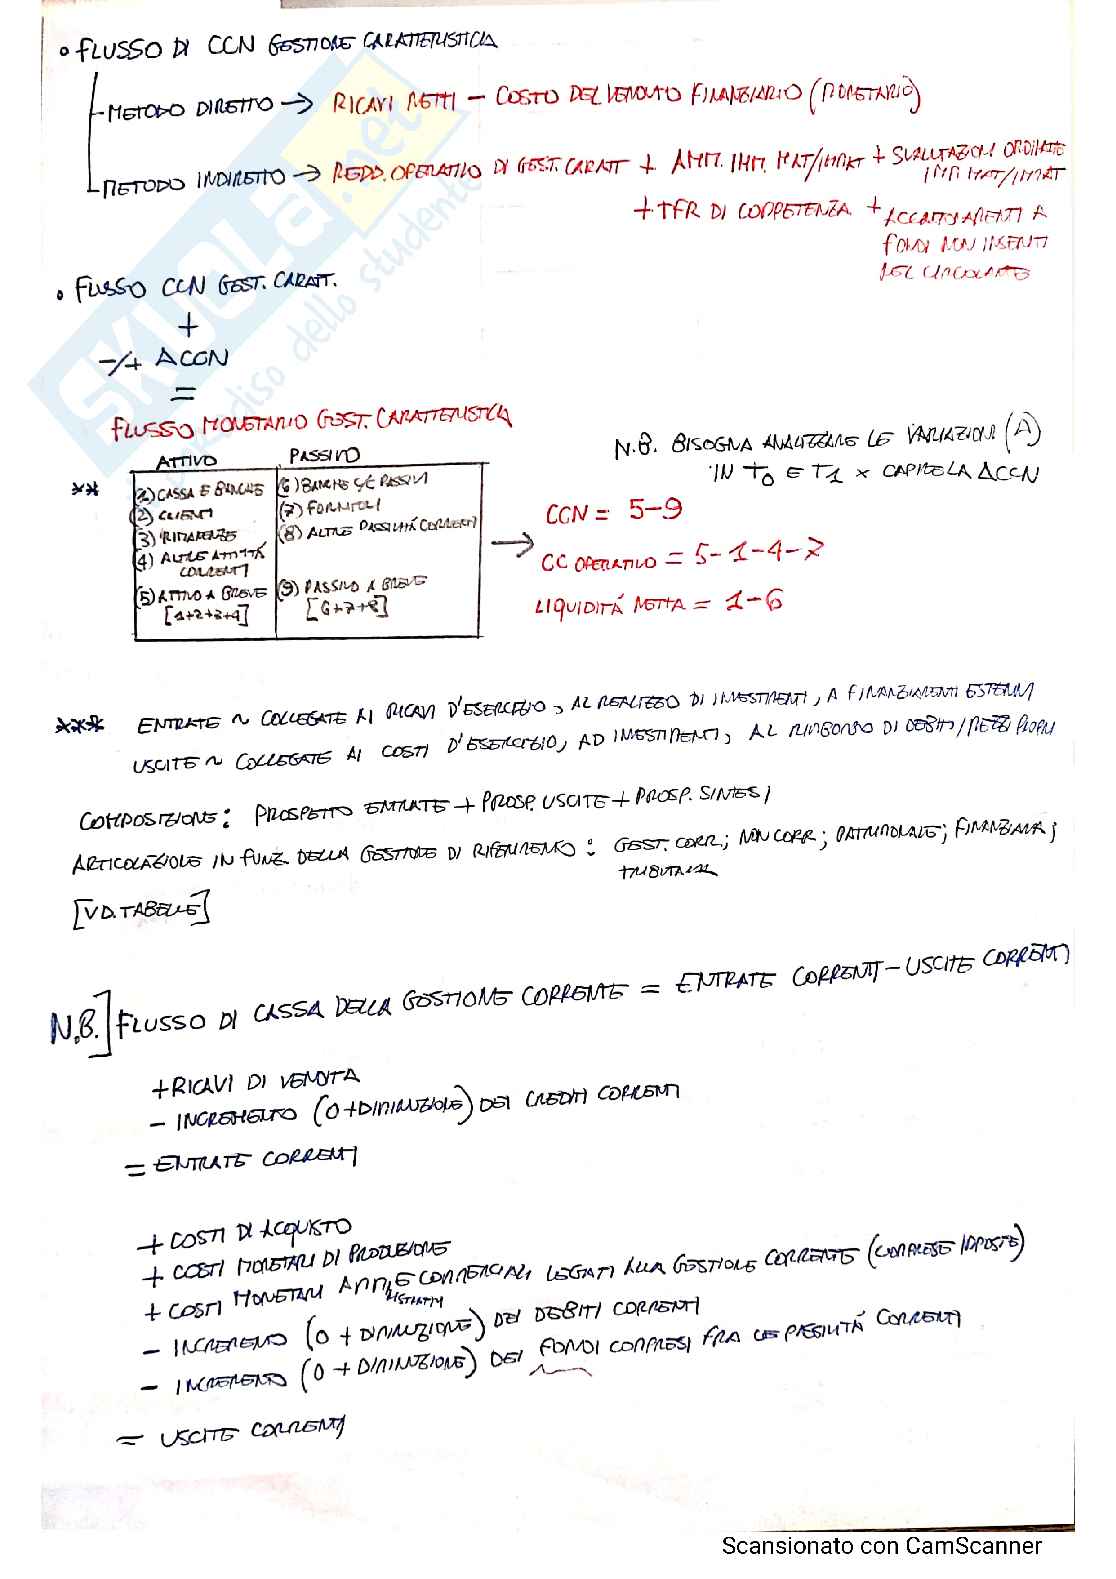 • FLUSSO DI CCN GESTIONE CARATTERISTICA
METODO DIRETTO → RICAVI NETTI - COSTO DEL VENDUTO FINANZIARIO (MONETARIO)
METODO INDIRETTO → REDD. OPERATIVO DI GEST. CARATT + AMM. IMM. MAT/IMMAT + SVALUTAZIONI ORDINARIE
IMM MAT/IMMAT
+ TFR DI COMPETENZA + ACCANTONAMENTI A
FONDI NON INSERITI
NEL CIRCOLANTE
• FLUSSO CCN GEST. CARATT.
+
-/+ Δ CCN
=
FLUSSO MONETARIO GEST. CARATTERISTICA
N.B. BISOGNA ANALIZZARE LE VARIAZIONI (Δ)
IN T0 E T1 x CAPIRE LA ΔCCN
**
ATTIVO PASSIVO
(1) CASSA E BANCHE (6) BANCHE C/C PASSIVI
(2) CLIENTI (7) FORNITORI
(3) RIMANENZE (8) ALTRE PASSIVITÀ CORRENTI
(4) ALTRE ATTIVITÀ
CORRENTI
(5) ATTIVO A BREVE (9) PASSIVO A BREVE
[1+2+3+4] [6+7+8]
→
CCN = 5-9
CC OPERATIVO = 5-1-4-7
LIQUIDITÁ NETTA = 1-6
*** ENTRATE ~ COLLEGATE AI RICAVI D'ESERCIZIO, AL REALIZZO DI INVESTIMENTI, A FINANZIAMENTI ESTERNI
USCITE ~ COLLEGATE AI COSTI D'ESERCIZIO, AD INVESTIMENTI, AL RIMBORSO DI DEBITI/MEZZI PROPRI
COMPOSIZIONE: PROSPETTO ENTRATE + PROSP. USCITE + PROSP. SINTESI
ARTICOLAZIONE IN FUNZ. DELLA GESTIONE DI RIFERIMENTO: GEST. CORR; NON CORR; PATRIMONIALE; FINANZIARIA;
TRIBUTARIA
[VD. TABELLE]
N.B.] FLUSSO DI CASSA DELLA GESTIONE CORRENTE = ENTRATE CORRENTI - USCITE CORRENTI
+ RICAVI DI VENDITA
- INCREMENTO (O + DIMINUZIONE) DEI CREDITI CORRENTI
= ENTRATE CORRENTI
+ COSTI DI ACQUISTO
+ COSTI MONETARI DI PRODUZIONE
+ COSTI MONETARI AMMINISTRATIVI E COMMERCIALI LEGATI ALLA GESTIONE CORRENTE (COMPRESE IMPOSTE)
- INCREMENTO (O + DIMINUZIONE) DEI DEBITI CORRENTI
- INCREMENTO (O + DIMINUZIONE) DEI FONDI COMPRESI FRA LE PASSIVITÁ CORRENTI
= USCITE CORRENTI
SKUOLA.net
paradiso dello studente
Scansionato con CamScanner